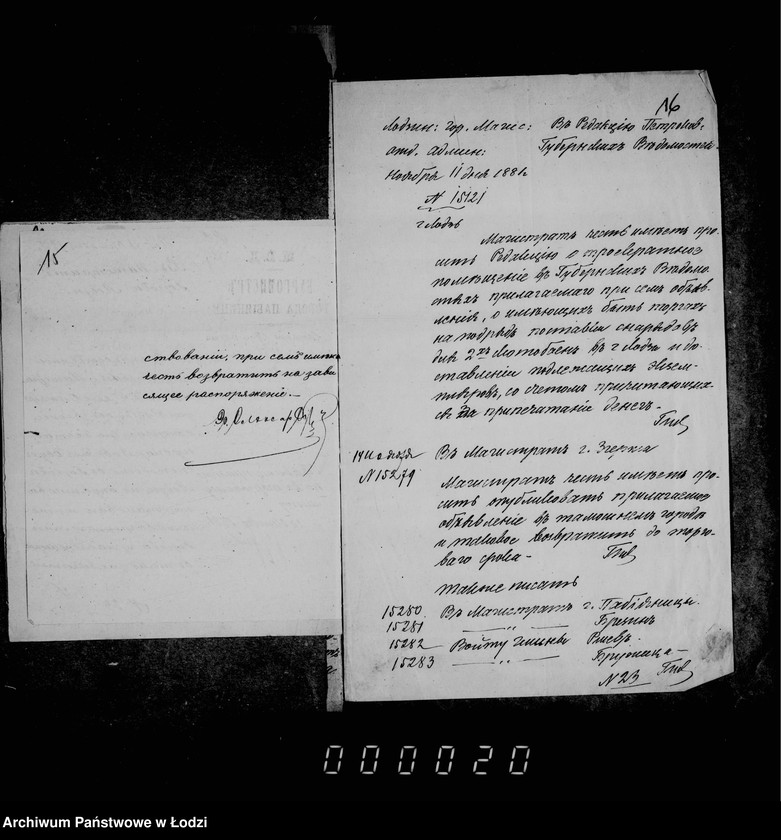 15
ствованiи, при семъ имѣю
честь возвратить на зави
сящее распоряженiе.—
16
Лодзин: гор. Магис: Въ Редакцiю Петроков:
отд. Админ: Губернскихъ Вѣдомостей
Ноября 11 дня 188
N 15121
г. Лодзь
Магистратъ честь имѣетъ про-
сить Редакцiю о троекратное
помѣщенiе въ Губернскихъ Вѣдомо-
стяхъ прилагаемаго при семъ объяв-
ленiя, о имѣющихъ быть торгахъ
на подрядъ поставки снарядовъ
для 2хъ въ г. Лодзи и до-
ставленiи подлежащихъ экзем-
пляровъ, со счетомъ причитающих-
ся за припечатанiе денегъ.
N 15279
Въ Магистратъ г. Згержа
Магистратъ честь имѣетъ про-
сить опубликовать прилагаемое
объявленiе въ тамошнемъ городѣ
и таковое возвратить до торго-
ваго срока—
Также писать
15280 Въ Магистратъ г. Пабiяницы.
15281 —〃— Брезинъ
15282 Войту гмины
15283 —〃— Бружица—
N 23
000020
Archiwum Państwowe w Łodzi